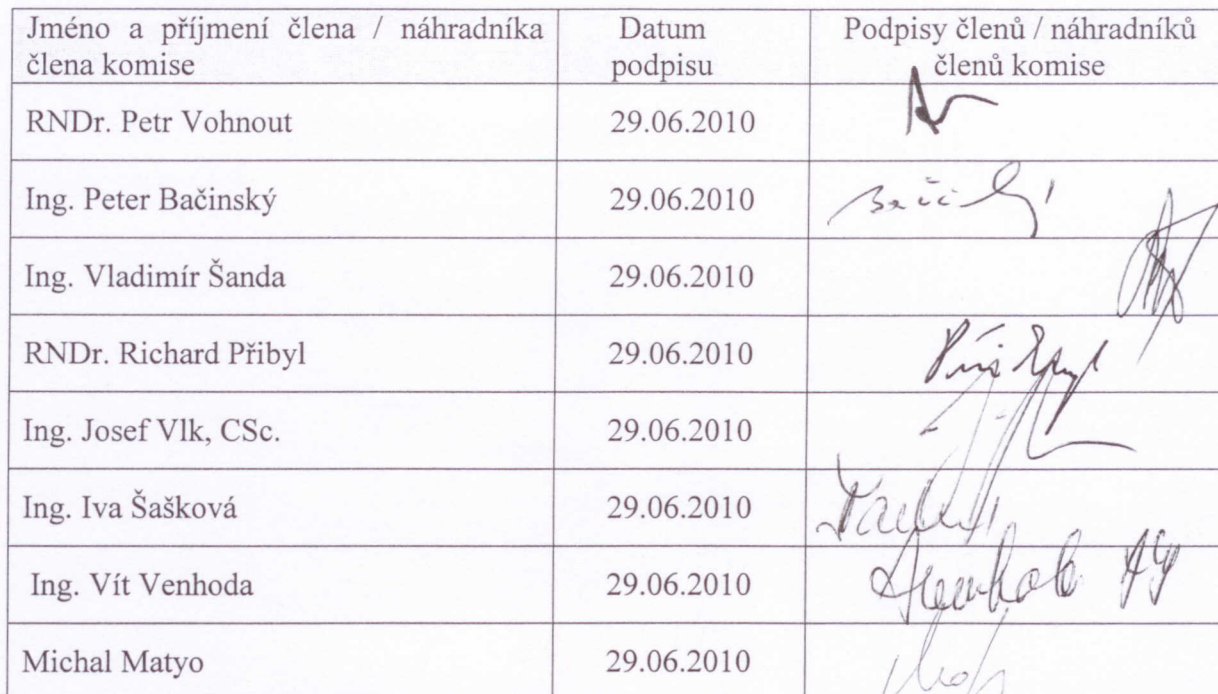 Jméno a příjmení člena / náhradníka
člena komise
Datum
podpisu
Podpisy členů / náhradníků
členů komise
RNDr. Petr Vohnout 29.06.2010
Ing. Peter Bačinský 29.06.2010
Ing. Vladimír Šanda 29.06.2010
RNDr. Richard Přibyl 29.06.2010
Ing. Josef Vlk, CSc. 29.06.2010
Ing. Iva Šašková 29.06.2010
Ing. Vít Venhoda 29.06.2010
Michal Matyo 29.06.2010